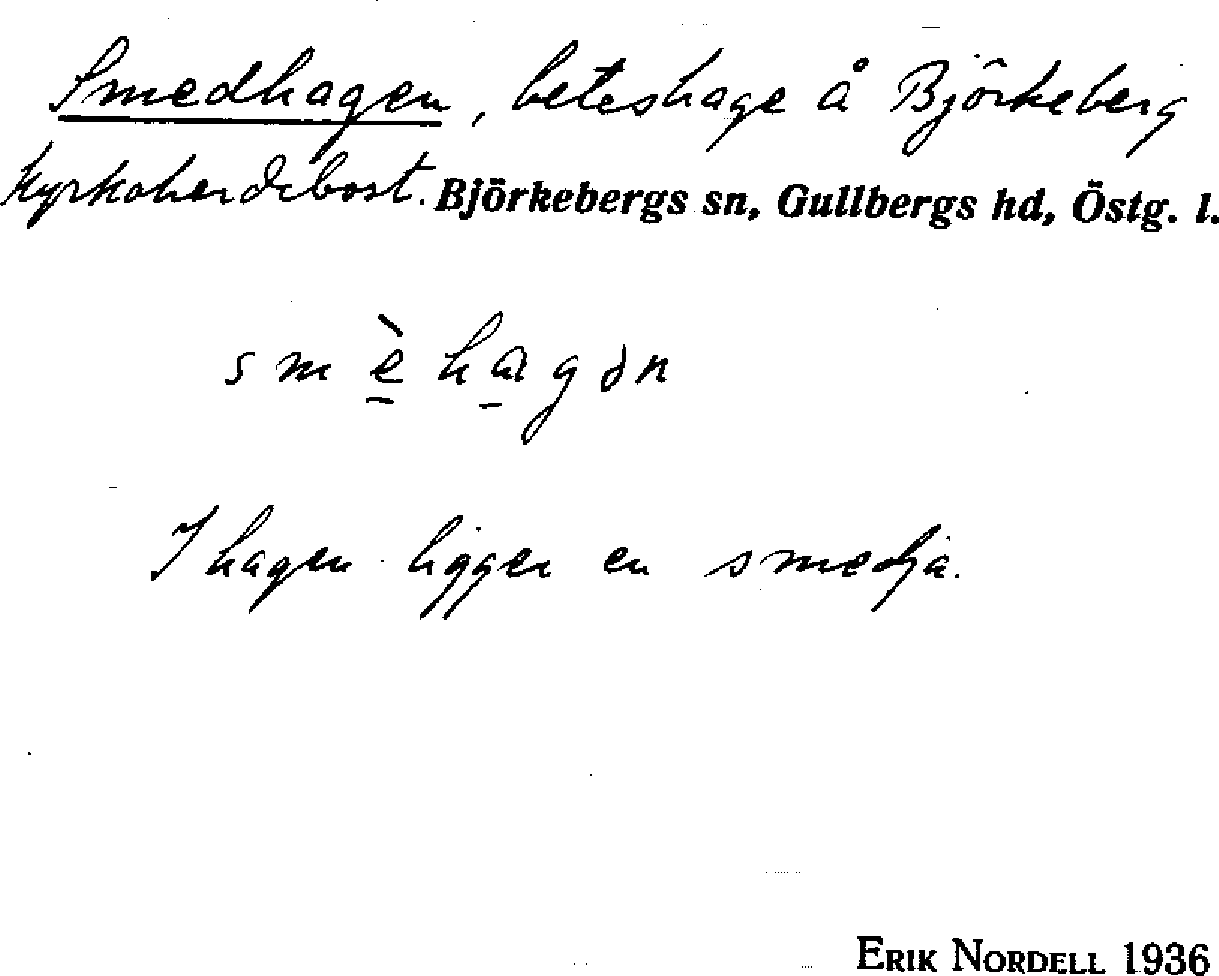 Smedhagen, beteshage å Björkeberg
kyrkoherdebost. Björkebergs sn, Gullbergs hd, Östg. l.
smè̠ha̠gən
I hagen ligger en smedja.
ERIK NORDELL 1936